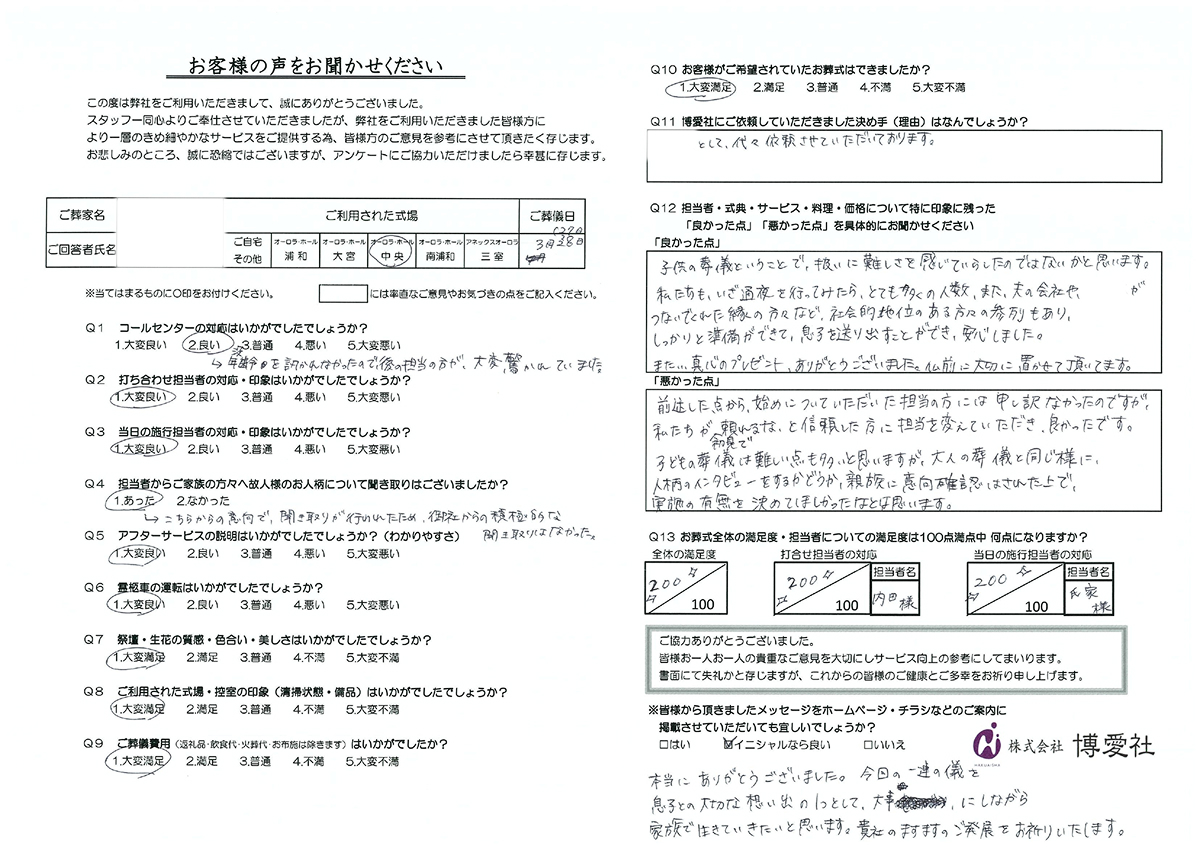 お客様の声をお聞かせください
この度は弊社をご利用いただきまして、誠にありがとうございました。
スタッフ一同心よりご奉仕させていただきましたが、弊社をご利用いただきました皆様方に
より一層のきめ細やかなサービスをご提供する為、皆様方のご意見を参考にさせて頂きたく存じます。
お悲しみのところ、誠に恐縮ではございますが、アンケートにご協力いただけましたら幸甚に存じます。
ご葬家名 ご利用された式場 ご葬儀日
ご回答者氏名 ご自宅 その他 オーロラ・ホール 浦和 オーロラ・ホール 大宮 オーロラ・ホール 中央 オーロラ・ホール 南浦和 アネックスオーロラ 三室 27日 3月28日
※当てはまるものに○印をお付けください。 には率直なご意見やお気づきの点をご記入ください。
Q1 コールセンターの対応はいかがでしたでしょうか?
1.大変良い 2.良い 3.普通 4.悪い 5.大変悪い
↳ 年齢を訊かれなかったので後の担当の方が、大変驚かれていました
Q2 打ち合わせ担当者の対応・印象はいかがでしたでしょうか?
1.大変良い 2.良い 3.普通 4.悪い 5.大変悪い
Q3 当日の施行担当者の対応・印象はいかがでしたでしょうか?
1.大変良い 2.良い 3.普通 4.悪い 5.大変悪い
Q4 担当者からご家族の方々へ故人様のお人柄について聞き取りはございましたか?
1.あった 2.なかった
↳ こちらからの意向で、聞き取りが行われたため、御社からの積極的な
聞き取りはなかった。
Q5 アフターサービスの説明はいかがでしたでしょうか?(わかりやすさ)
1.大変良い 2.良い 3.普通 4.悪い 5.大変悪い
Q6 霊柩車の運転はいかがでしたでしょうか?
1.大変良い 2.良い 3.普通 4.悪い 5.大変悪い
Q7 祭壇・生花の質感・色合い・美しさはいかがでしたでしょうか?
1.大変満足 2.満足 3.普通 4.不満 5.大変不満
Q8 ご利用された式場・控室の印象(清掃状態・備品)はいかがでしたでしょうか?
1.大変満足 2.満足 3.普通 4.不満 5.大変不満
Q9 ご葬儀費用(返礼品・飲食代・火葬代・お布施は除きます)はいかがでしたか?
1.大変満足 2.満足 3.普通 4.不満 5.大変不満
Q10 お客様がご希望されていたお葬式はできましたか?
1.大変満足 2.満足 3.普通 4.不満 5.大変不満
Q11 博愛社にご依頼していただきました決め手(理由)はなんでしょうか?
として、代々依頼させていただいております。
Q12 担当者・式典・サービス・料理・価格について特に印象に残った
「良かった点」「悪かった点」を具体的にお聞かせください
「良かった点」
子供の葬儀ということで、扱いに難しさを感じていらしたのではないかと思います。
私たちも、いざ通夜を行ってみたら、とても多くの人数、また、夫の会社や、が
つないでくれた縁の方々など、社会的地位のある方々の参列もあり、
しっかりと準備ができて、息子を送り出すことができ、安心しました。
また、真心のプレゼント、ありがとうございました。仏前に大切に置かせて頂いてます。
「悪かった点」
前述した点から、始めについていただいた担当の方には申し訳なかったのですが、
私たちが、頼れるな、と信頼した方に担当を変えていただき、良かったです。
初見で
子どもの葬儀は難しい点も多いと思いますが、大人の葬儀と同じ様に、
人柄のインタビューをするかどうか、親族に意向確認はされた上で、
実施の有無を決めてほしかったなとは思います。
Q13 お葬式全体の満足度・担当者についての満足度は100点満点中 何点になりますか?
全体の満足度 打合せ担当者の対応 当日の施行担当者の対応
200 100 200 100 担当者名 内田様 200 100 担当者名 氏家様
ご協力ありがとうございました。
皆様お一人お一人の貴重なご意見を大切にしサービス向上の参考にしてまいります。
書面にて失礼かと存じますが、これからの皆様のご健康とご多幸をお祈り申し上げます。
※皆様から頂きましたメッセージをホームページ・チラシなどのご案内に
掲載させていただいても宜しいでしょうか?
□はい ☑イニシャルなら良い □いいえ
HAKUAISHA 株式会社 博愛社
本当にありがとうございました。今回の一連の儀を
息子との大切な想い出の1つとして、大事にしながら
家族で生きていきたいと思います。貴社のますますのご発展をお祈りいたします。